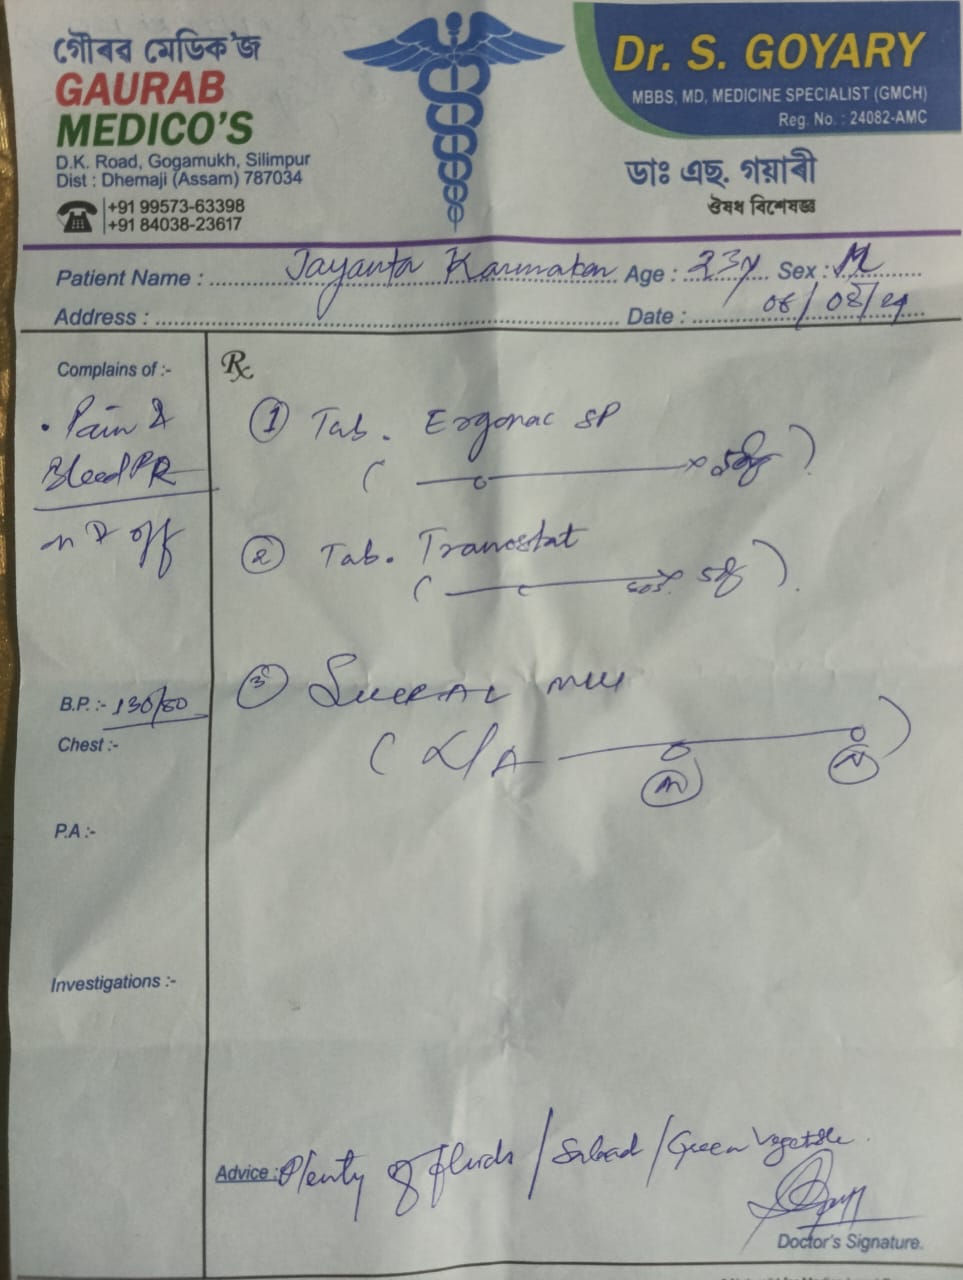 গৌৰৱ মেডিক'জ
GAURAB
MEDICO'S
D.K. Road, Gogamukh, Silimpur
Dist : Dhemaji (Assam) 787034
+91 99573-63398
+91 84038-23617
Dr. S. GOYARY
MBBS, MD, MEDICINE SPECIALIST (GMCH)
Reg. No. : 24082-AMC
ডাঃ এছ. গয়াৰী
ঔষধ বিশেষজ্ঞ
Patient Name : Jayanta Karmakar Age : 23y Sex : M
Address : Date : 08/08/24
Complains of :-
• Pain &
Bleed PR
off
B.P. :- 130/80
Chest :-
P.A :-
Investigations :-
Rx
① Tab. Ergonac SP
② Tab. Tranostat
③ Sucral
( L/A
Advice : Plenty of fluids / Salad / Green Vegetable.
Doctor's Signature.